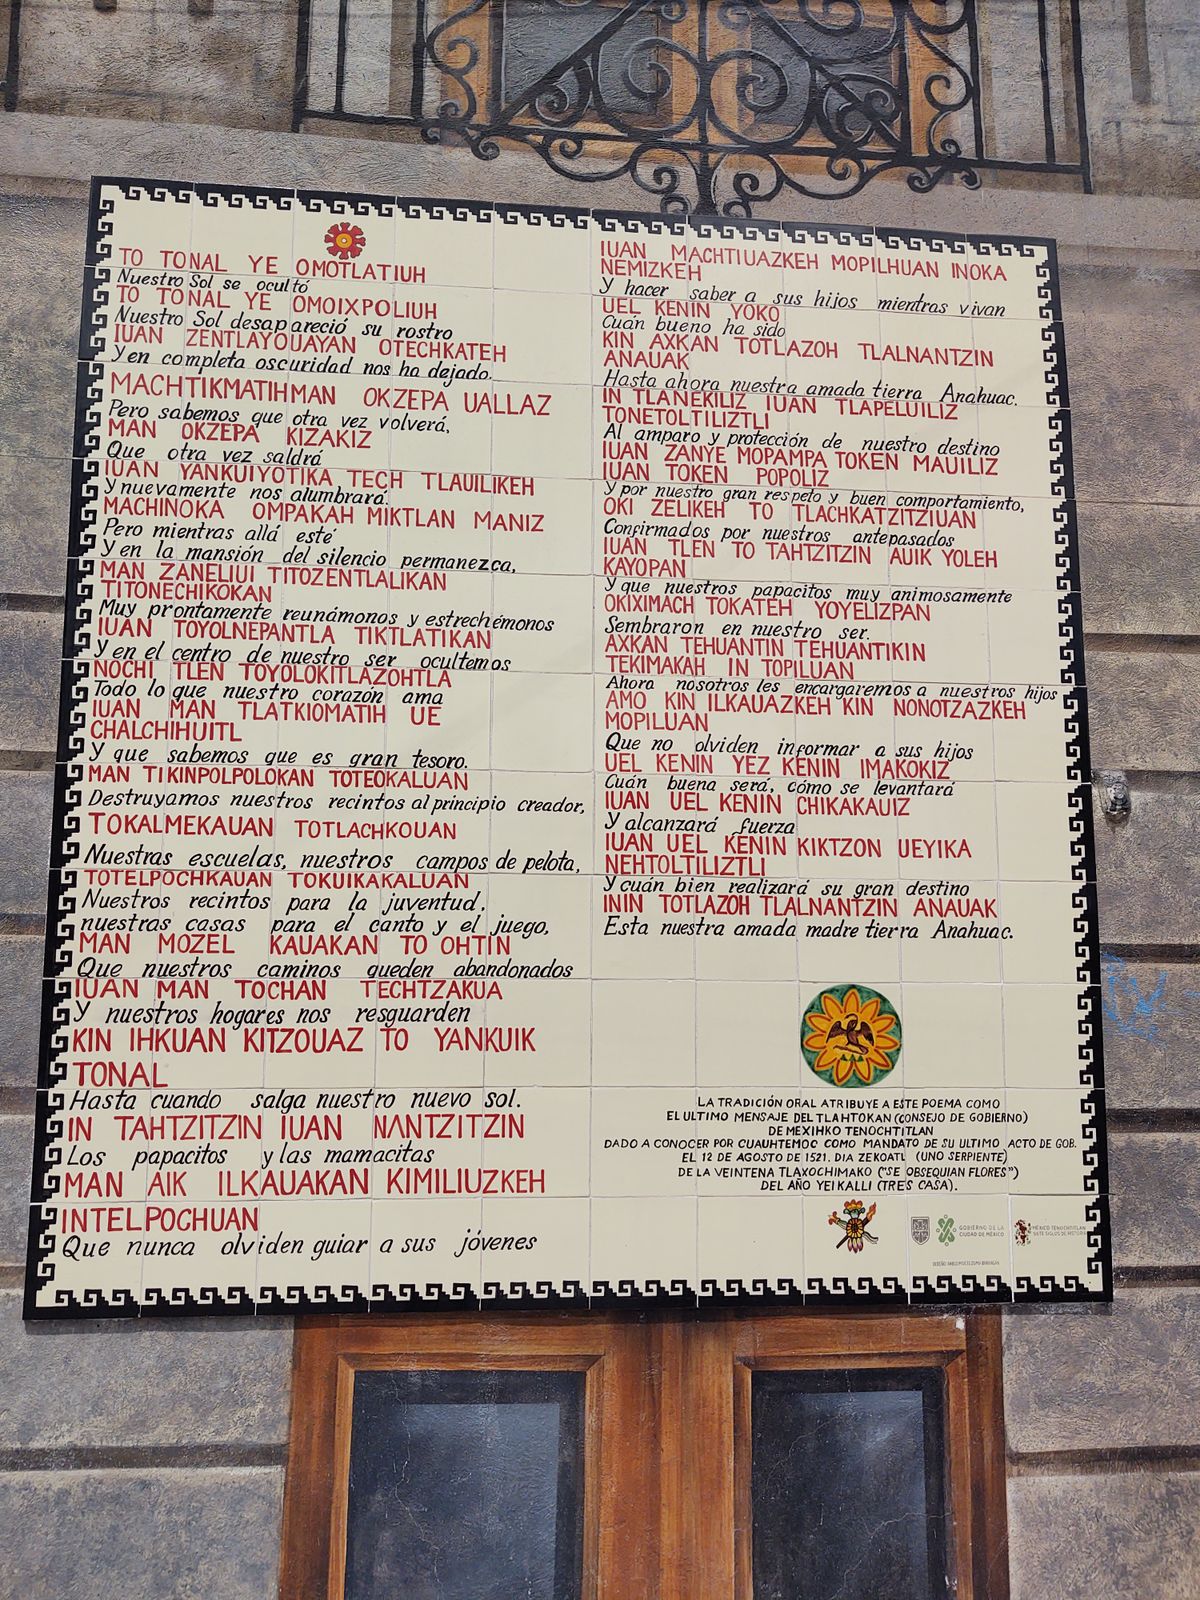 TO TONAL YE OMOTLATIUH
Nuestro Sol se ocultó
TO TONAL YE OMOIXPOLIUH
Nuestro Sol desapareció su rostro
IUAN ZENTLAYOUAYAN OTECHKATEH
Y en completa oscuridad nos ha dejado.
MACHTIKMATIHMAN OKZEPA UALLAZ
Pero sabemos que otra vez volverá,
MAN OKZEPA KIZAKIZ
Que otra vez saldrá
IUAN YANKUIYOTIKA TECH TLAUILIKEH
Y nuevamente nos alumbrará.
MACHINOKA OMPAKAH MIKTLAN MANIZ
Pero mientras allá esté
Y en la mansión del silencio permanezca,
MAN ZANELIUI TITOZENTLALIKAN
TITONECHIKOKAN
Muy prontamente reunámonos y estrechémonos
IUAN TOYOLNEPANTLA TIKTLATIKAN
Y en el centro de nuestro ser ocultemos
NOCHI TLEN TOYOLOKITLAZOHTLA
Todo lo que nuestro corazón ama
IUAN MAN TLATKIOMATIH UE
CHALCHIHUITL
Y que sabemos que es gran tesoro.
MAN TIKINPOLPOLOKAN TOTEOKALUAN
Destruyamos nuestros recintos al principio creador,
TOKALMEKAUAN TOTLACHKOUAN
Nuestras escuelas, nuestros campos de pelota,
TOTELPOCHKAUAN TOKUIKAKALUAN
Nuestros recintos para la juventud,
nuestras casas para el canto y el juego,
MAN MOZEL KAUAKAN TO OHTIN
Que nuestros caminos queden abandonados
IUAN MAN TOCHAN TECHTZAKUA
Y nuestros hogares nos resguarden
KIN IHKUAN KITZOUAZ TO YANKUIK
TONAL
Hasta cuando salga nuestro nuevo sol.
IN TAHTZITZIN IUAN NANTZITZIN
Los papacitos y las mamacitas
MAN AIK ILKAUAKAN KIMILIUZKEH
INTELPOCHUAN
Que nunca olviden guiar a sus jóvenes
IUAN MACHTIUAZKEH MOPILHUAN INOKA
NEMIZKEH
Y hacer saber a sus hijos mientras vivan
UEL KENIN YOKO
Cuán bueno ha sido
KIN AXKAN TOTLAZOH TLALNANTZIN
ANAUAK
Hasta ahora nuestra amada tierra Anahuac.
IN TLANEKILIZ IUAN TLAPELUILIZ
TONETOLTILIZTLI
Al amparo y protección de nuestro destino
IUAN ZANYE MOPAMPA TOKEN MAUILIZ
IUAN TOKEN POPOLIZ
Y por nuestro gran respeto y buen comportamiento,
OKI ZELIKEH TO TLACHKATZITZIUAN
Confirmados por nuestros antepasados
IUAN TLEN TO TAHTZITZIN AUIK YOLEH
KAYOPAN
Y que nuestros papacitos muy animosamente
OKIXIMACH TOKATEH YOYELIZPAN
Sembraron en nuestro ser.
AXKAN TEHUANTIN TEHUANTIKIN
TEKIMAKAH IN TOPILUAN
Ahora nosotros les encargaremos a nuestros hijos
AMO KIN ILKAUAZKEH KIN NONOTZAZKEH
MOPILUAN
Que no olviden informar a sus hijos
UEL KENIN YEZ KENIN IMAKOKIZ
Cuán buena será, cómo se levantará
IUAN UEL KENIN CHIKAKAUIZ
Y alcanzará fuerza
IUAN UEL KENIN KIKTZON UEYIKA
NEHTOLTILIZTLI
Y cuán bien realizará su gran destino
ININ TOTLAZOH TLALNANTZIN ANAUAK
Esta nuestra amada madre tierra Anahuac.
LA TRADICIÓN ORAL ATRIBUYE A ESTE POEMA COMO
EL ULTIMO MENSAJE DEL TLAHTOKAN (CONSEJO DE GOBIERNO)
DE MEXIHKO TENOCHTITLAN
DADO A CONOCER POR CUAUHTEMOC COMO MANDATO DE SU ULTIMO ACTO DE GOB.
EL 12 DE AGOSTO DE 1521. DIA ZEKOATL (UNO SERPIENTE)
DE LA VEINTENA TLAXOCHIMAKO ("SE OBSEQUIAN FLORES")
DEL AÑO YEIKALLI (TRES CASA).
GOBIERNO DE LA
CIUDAD DE MÉXICO
MÉXICO TENOCHTITLAN
SIETE SIGLOS DE HISTORIA